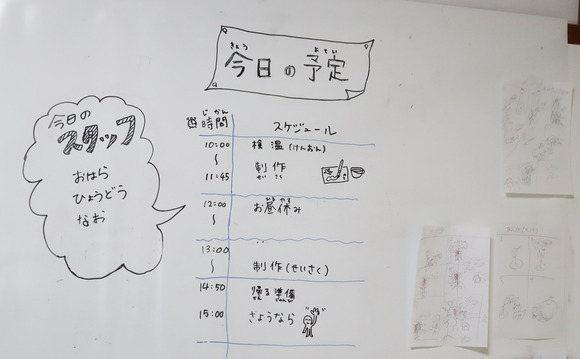 きょう よてい
今日の予定
今日の
スタッフ
おはら
ひょうどう
なお
じかん
時間 スケジュール
10:00 検温(けんおん)
〜 制作
せいさく
11:45
12:00 お昼休み
〜
13:00
〜 制作(せいさく)
14:50 帰る準備
15:00 さようなら